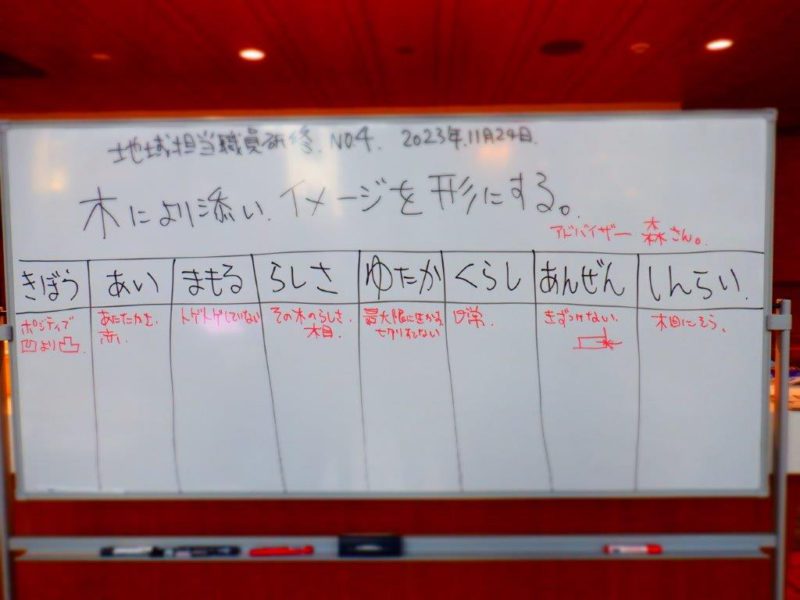 地域担当職員研修 NO4. 2023年.11月24日.
木により添い.イメージを形にする。
アドバイザー 森さん。
きぼう あい まもる らしさ ゆたか くらし あんぜん しんらい.
ポジティブ
凹より凸.
あたたかさ.
赤.
トゲトゲしていない
その木のらしさ.
木目.
最大限に生かす
しない
日常.
きずつけない.
木目にそう.